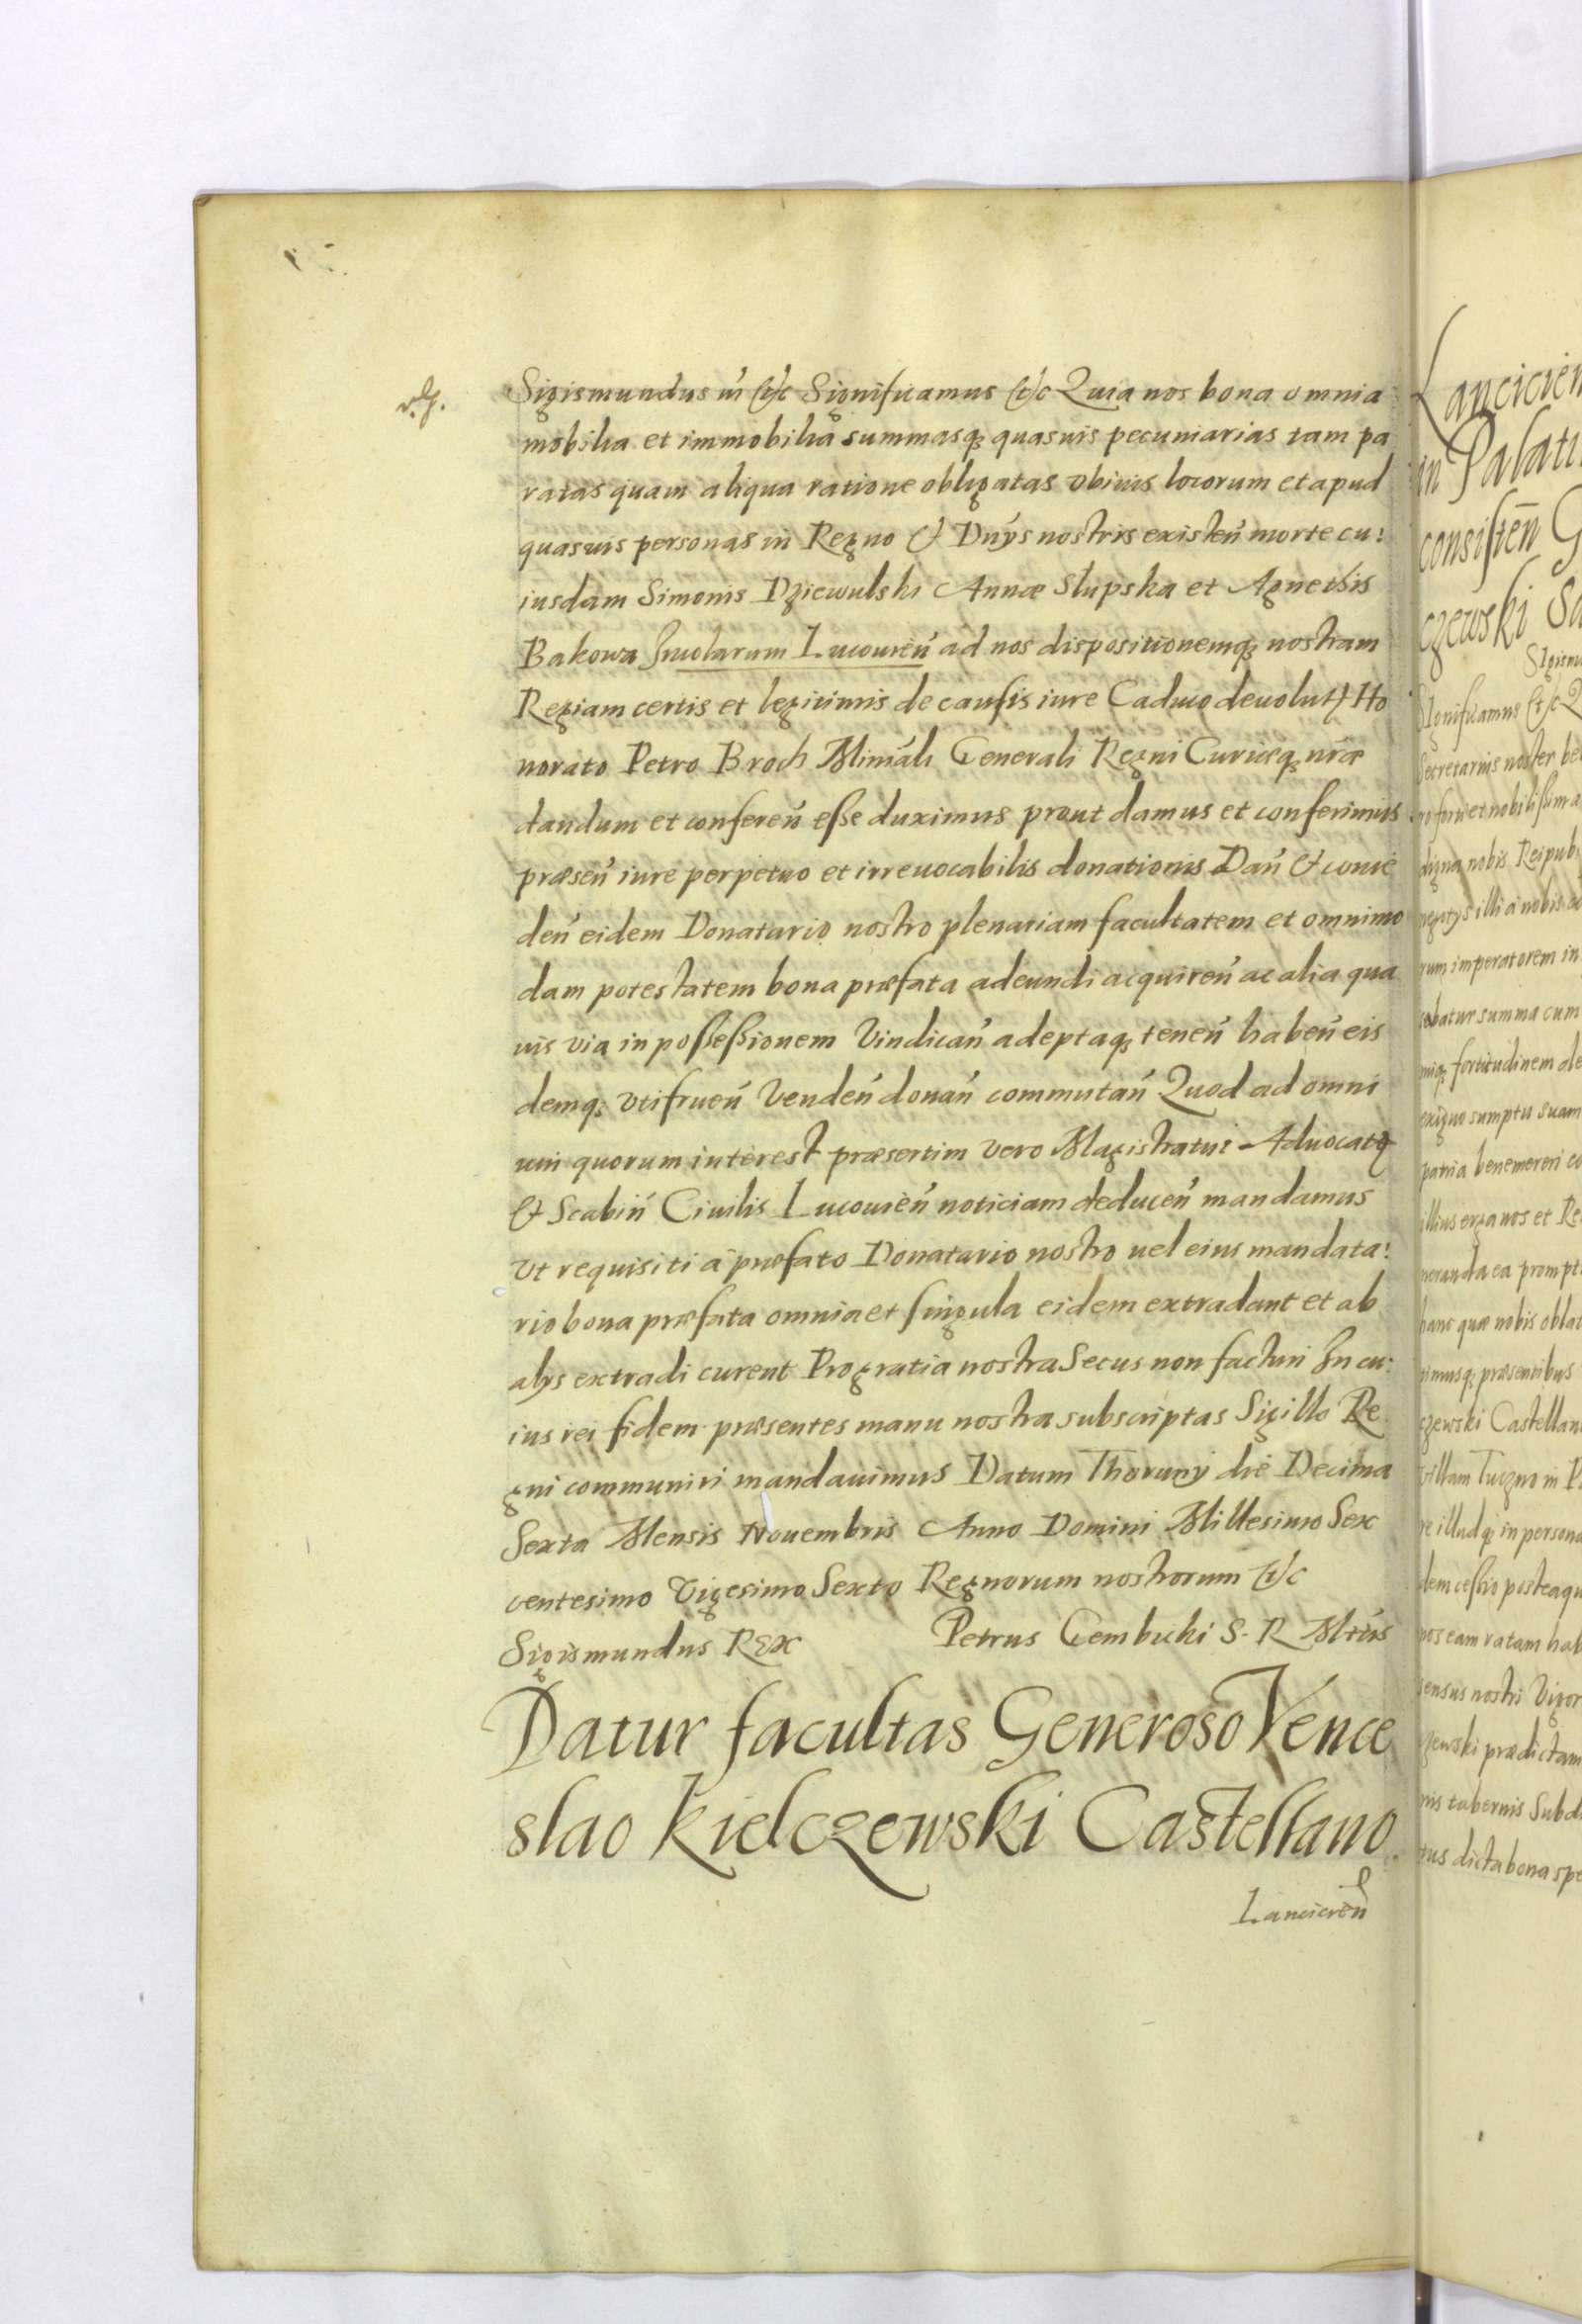 Sigismundus iii &c Significamus &c Quia nos bona omnia
mobilia et immobilia summasq quasuis pecuniarias tam pa
ratas quam aliqua ratione obligatas vbiuis locorum et apud
quasuis personas in Regno & Dnys nostris existen morte cu:
iusdam Simonis Dziewulski Annæ Slupska et Agnetis
Bakowa Incolarum Lucouien ad nos dispositionemq nostram
Regiam certis et legitimis de causis iure Caduco deuolut Ho
norato Petro Broch Miniali Generali Regni Curiæq nræ
dandum et conferen esse duximus prout damus et conferimus
præsen iure perpetuo et irreuocabilis donationis Dan & conce
den eidem Donatario nostro plenariam facultatem et omnimo
dam potestatem bona præfata adeundi acquiren ac alia qua
uis via in possessionem Vindican adeptaq tenen haben eis
demq vtifruen Venden donan commutan Quod ad omni
um quorum interest præsertim vero Magistratui Aduocato
& Scabin Ciuilis Lucouien noticiam deducen mandamus
Vt requisiti à præfato Donatario nostro uel eius mandata:
rio bona præfata omnia et singula eidem extradant et ab
alys extradi curent Pro gratia nostra Secus non facturi In cu:
ius rei fidem præsentes manu nostra subscriptas Sigillo Re
gni communiri mandauimus Datum Thoruny die Decima
Sexta Mensis Nouembris Anno Domini Millesimo Sex
centesimo Vigesimo Sexto Regnorum nostrorum &c
Sigismundus Rex Petrus Gembicki S. R Mtis
Datur facultas Generoso Vence
slao Kielczewski Castellano
Lancicien
Lancicien
in Palati
consisten G
czewski Sa
Sigism
Significamus &c Q
Secretarius noster be
digna nobis Reipub
rum imperatorem in
batur summa cum
miq fortitudinem de
exiguo sumptu suam
patria benemereri co
illius erga nos et Re
neranda ea prompt
hanc quæ nobis oblat
imusq præsentibus
czewski Castellan
villam Tuczno in P
re illudq in persona
dem cessio posteaqu
nos eam ratam hab
sensus nostri Vigor
zewski prædictam
nis tabernis Subd
tus dicta bona spe